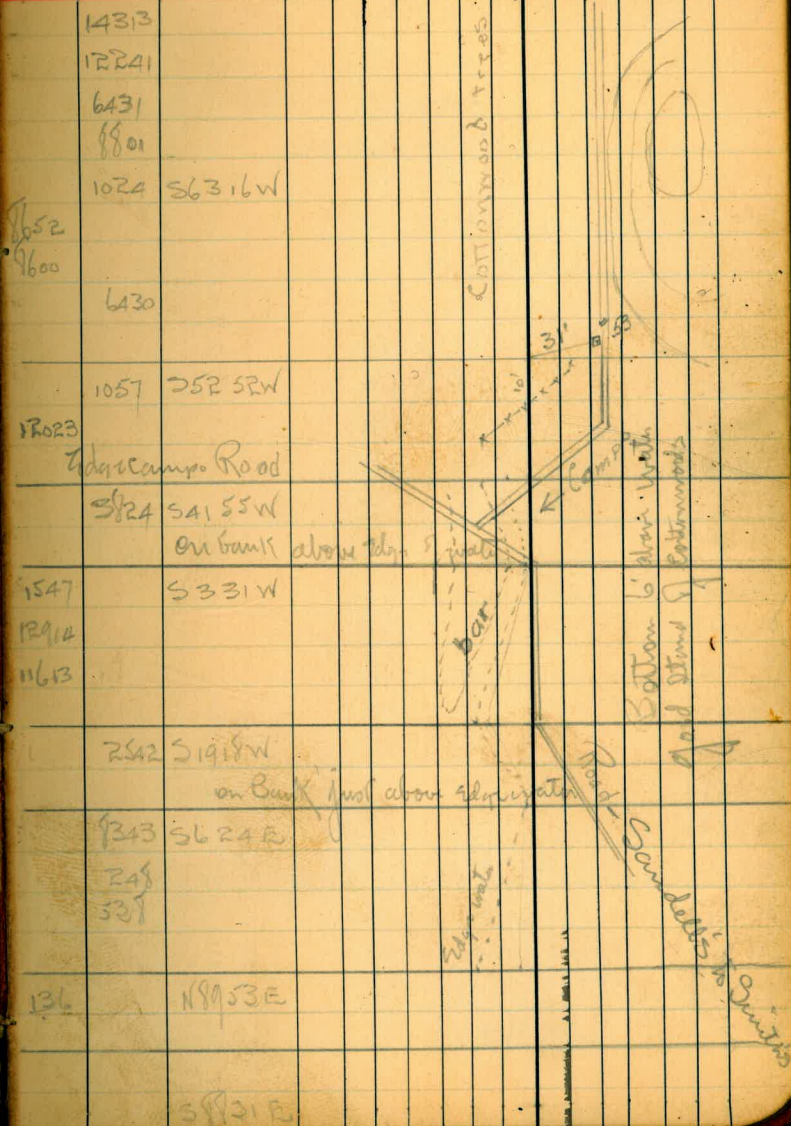 14313
12241
6431
8801
1024 S6316W
8652
9600
6430
1057 S52 52W
12023
Edgecamps Road
3824 S41 55W
on bank above Edge of water
1547 S331W
12914
11613
2542 S1918W
on Bank just above Edge water
8343 S624E
248
528
136 N8953E
S8821E
Cottonwood trees
31'
53
10'
Camp
bar
Bottom 6' above water
Good Stand of cottonwoods
Road Sandell's to Smith's
Edge water